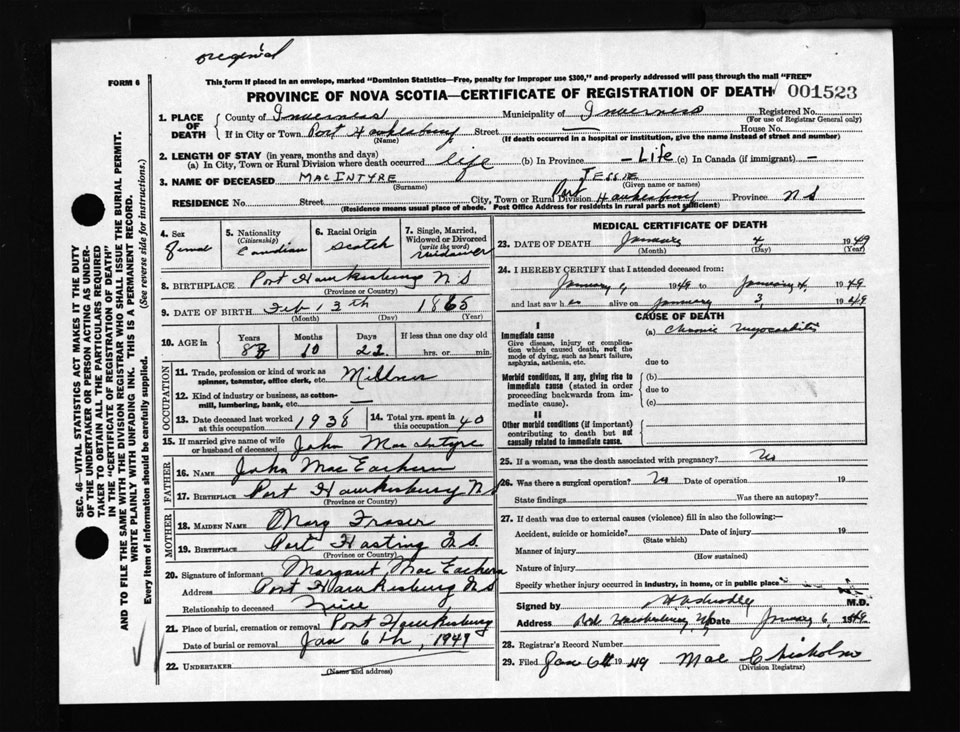 original
FORM 6
This form if placed in an envelope, marked "Dominion Statistics—Free, penalty for improper use $300," and properly addressed will pass through the mail "FREE"
PROVINCE OF NOVA SCOTIA—CERTIFICATE OF REGISTRATION OF DEATH 001523
1. PLACE OF DEATH
County of Inverness Municipality of Inverness Registered No.
(For use of Registrar General only)
If in City or Town Port Hawkesbury Street — House No.
(Name) (If death occurred in a hospital or institution, give the name instead of street and number)
2. LENGTH OF STAY (in years, months and days)
(a) In City, Town or Rural Division where death occurred life (b) In Province - Life (c) In Canada (if immigrant) -
3. NAME OF DECEASED MACINTYRE JESSIE
(Surname) (Given name or names)
RESIDENCE No. Street City, Town or Rural Division Port Hawkesbury Province N S
(Residence means usual place of abode. Post Office Address for residents in rural parts not sufficient)
4. Sex 5. Nationality (Citizenship) 6. Racial Origin 7. Single, Married, Widowed or Divorced (write the word)
Femal Canadian Scotch
8. BIRTHPLACE Port Hawkesbury N S
(Province or Country)
9. DATE OF BIRTH Feb 13th 1865
(Month) (Day) (Year)
10. AGE in Years Months Days If less than one day old
10 22 hrs. or min.
OCCUPATION
11. Trade, profession or kind of work as spinner, teamster, office clerk, etc. Millner
12. Kind of industry or business, as cotton-mill, lumbering, bank, etc. —
13. Date deceased last worked at this occupation 1938 14. Total yrs. spent in this occupation 40
15. If married give name of wife or husband of deceased John MacIntyre
FATHER
16. NAME John MacEachern
17. BIRTHPLACE Port Hawkesbury N S
(Province or Country)
MOTHER
18. MAIDEN NAME Mary Fraser
19. BIRTHPLACE Port Hasting N.S.
(Province or Country)
20. Signature of informant Margaret MacEachern
Address Port Hawkesbury N S
Relationship to deceased Niece
21. Place of burial, cremation or removal Port Hawkesbury
Date of burial or removal Jan 6th, 1949
22. UNDERTAKER
(Name and address)
MEDICAL CERTIFICATE OF DEATH
23. DATE OF DEATH January 4 1949
(Month) (Day) (Year)
24. I HEREBY CERTIFY that I attended deceased from:
January 1949 to January 4, 1949
and last saw h er alive on January 3, 1949
CAUSE OF DEATH
I
Immediate cause (a) Chronic myocarditis
Give disease, injury or complication which caused death, not the mode of dying, such as heart failure, asphyxia, asthenia, etc. due to
Morbid conditions, if any, giving rise to immediate cause (stated in order proceeding backwards from immediate cause). (b)
due to
(c)
II
Other morbid conditions (if important) contributing to death but not causally related to immediate cause.
25. If a woman, was the death associated with pregnancy? No
26. Was there a surgical operation? No Date of operation 19
State findings Was there an autopsy?
27. If death was due to external causes (violence) fill in also the following:—
Accident, suicide or homicide? Date of injury 19
(State which)
Manner of injury
(How sustained)
Nature of injury
Specify whether injury occurred in industry, in home, or in public place
Signed by M.D.
Address Port Hawkesbury, NS Date January 6, 1949
28. Registrar's Record Number
29. Filed Jan 6th 1949 Mac C Nicholson
(Division Registrar)
SEC. 46—VITAL STATISTICS ACT MAKES IT THE DUTY
OF THE UNDERTAKER OR PERSON ACTING AS UNDER-
TAKER TO OBTAIN ALL THE PARTICULARS REQUIRED
IN THE "CERTIFICATE OF REGISTRATION OF DEATH"
AND TO FILE THE SAME WITH THE DIVISION REGISTRAR WHO SHALL ISSUE THE BURIAL PERMIT.
WRITE PLAINLY WITH UNFADING INK. THIS IS A PERMANENT RECORD.
Every item of information should be carefully supplied. (See reverse side for instructions.)